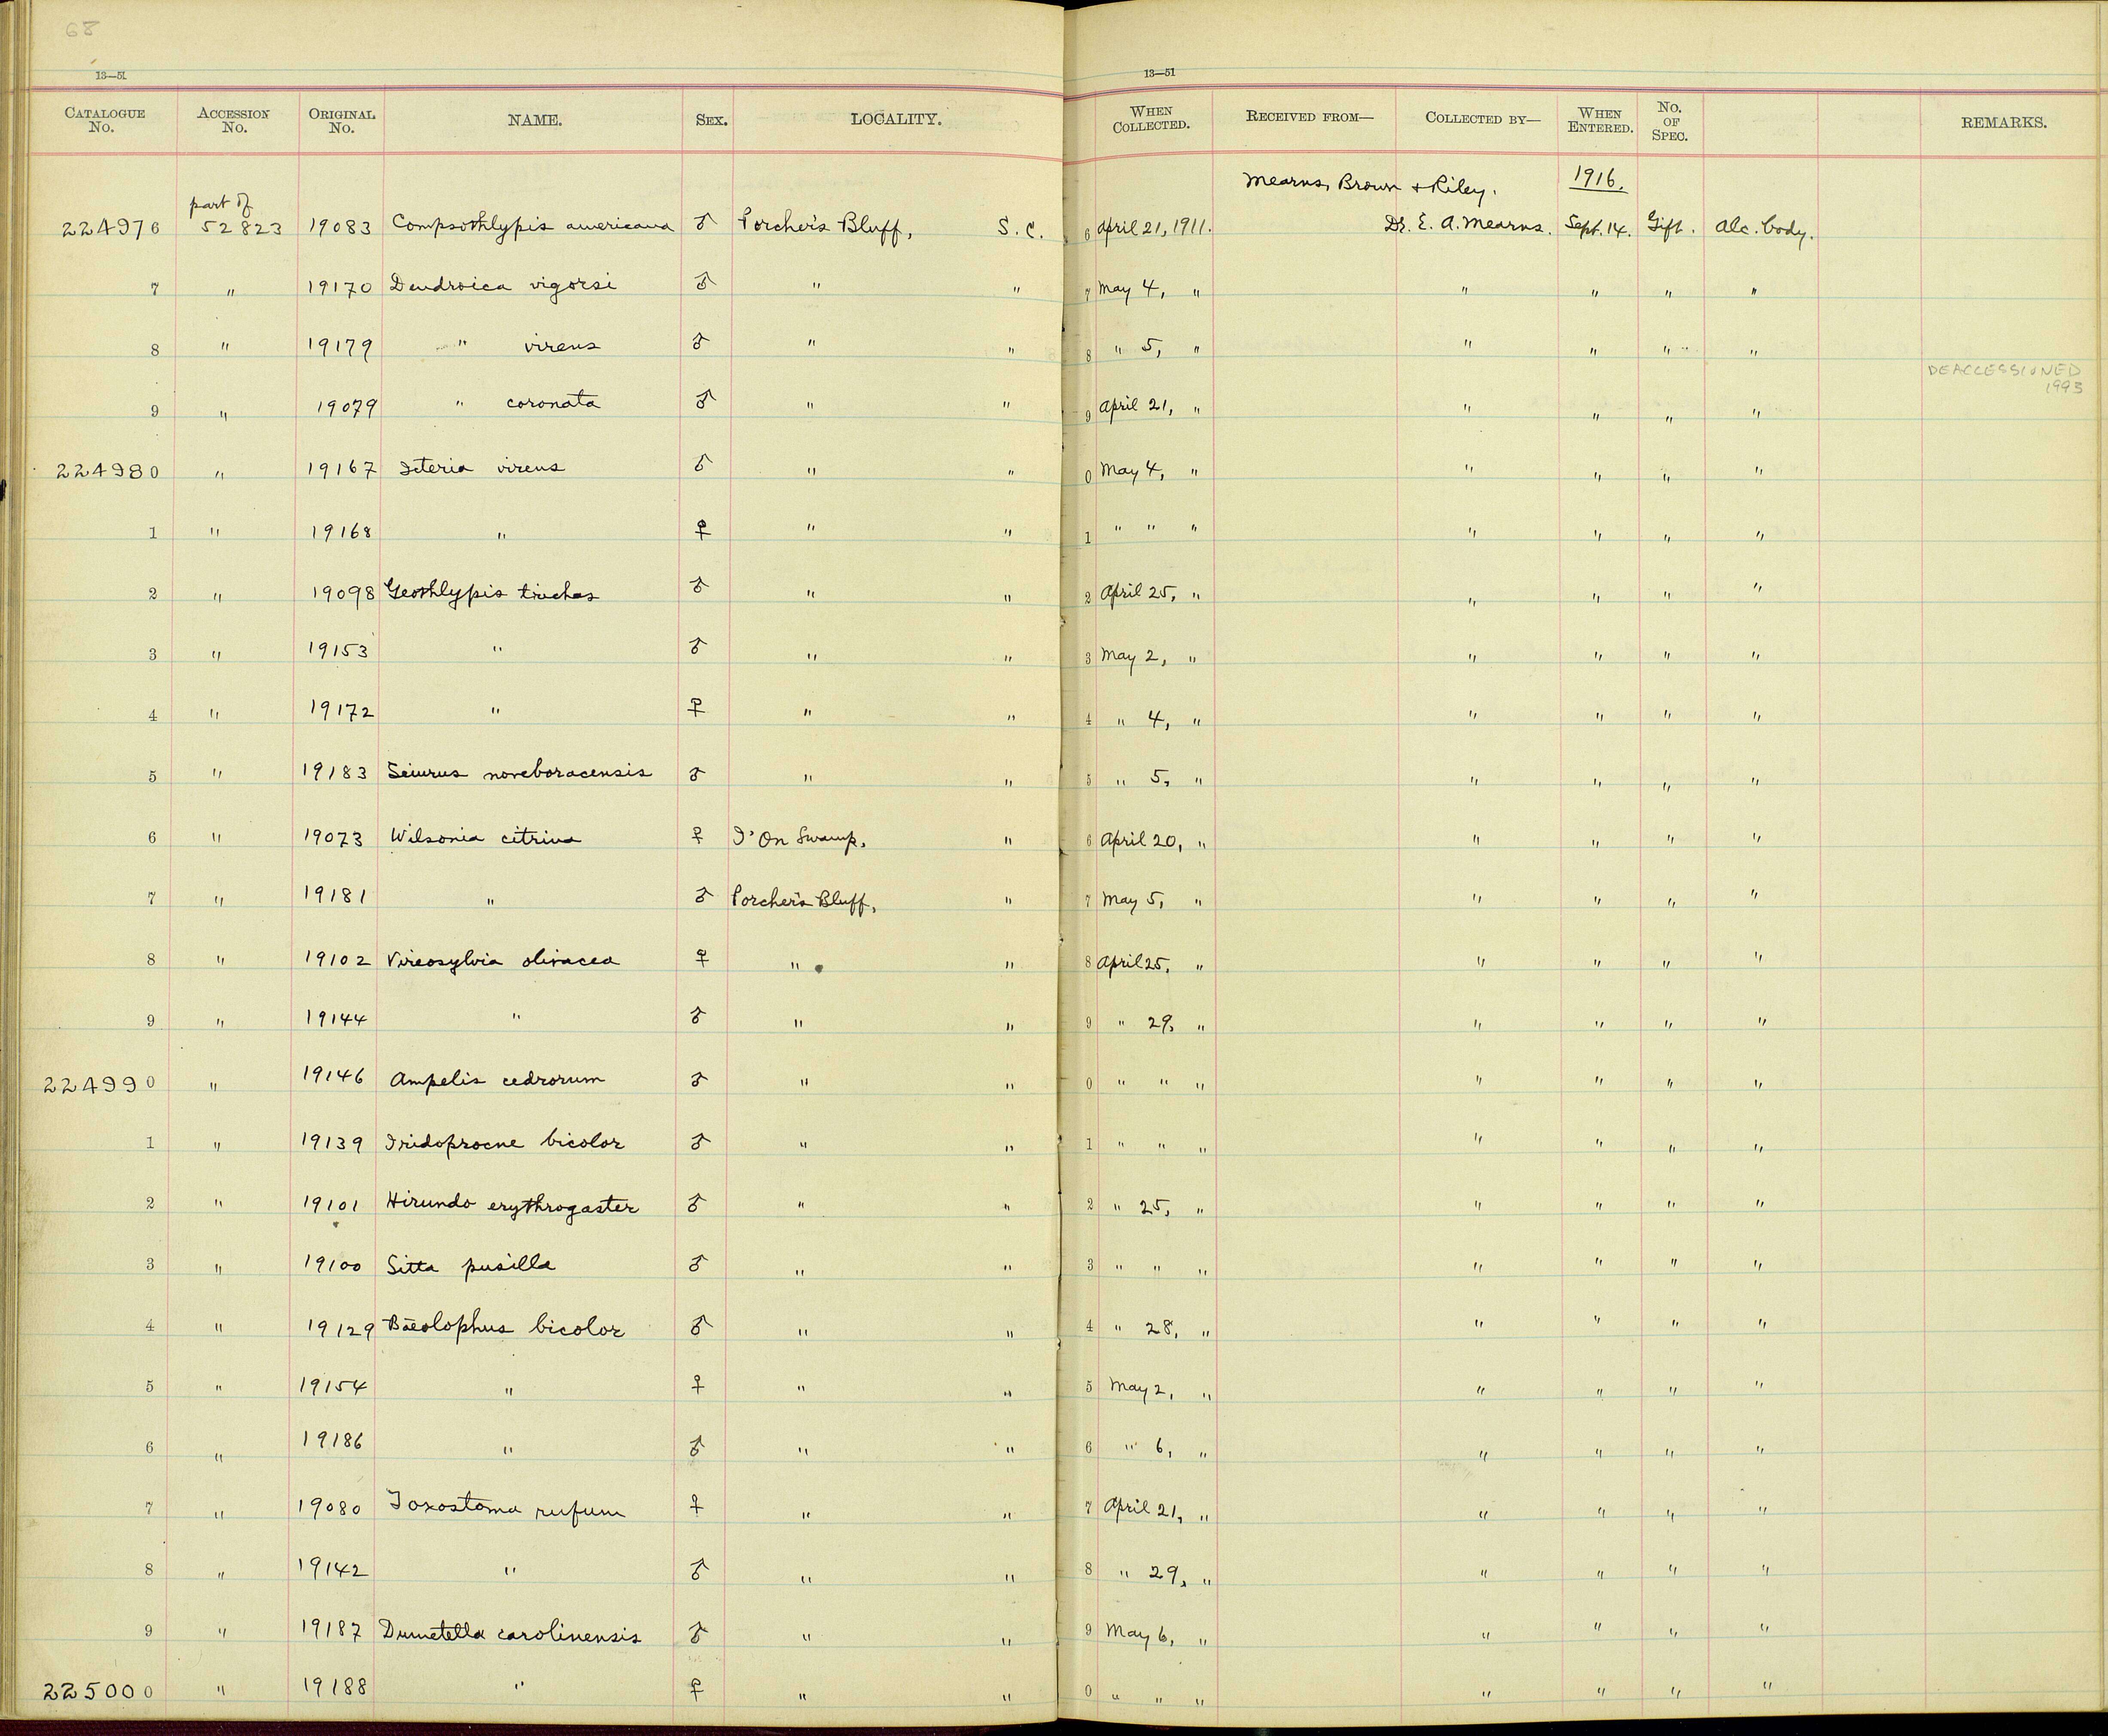 68
13—51 13—51
CATALOGUE No. ACCESSION No. ORIGINAL No. NAME. SEX. LOCALITY. WHEN COLLECTED. RECEIVED FROM— COLLECTED BY— WHEN ENTERED. No. OF SPEC. REMARKS.
Mearns, Brown & Riley. 1916.
part of
224976 52823 19083 Compsothlypis americana ♂ Porcher's Bluff, S. C. 6 April 21, 1911. Dr. E. A. Mearns. Sept. 14. Gift. Alc. body.
7 " 19170 Dendroica vigorsi ♂ " " 7 May 4, " " " " "
8 " 19179 " virens ♂ " " 8 " 5, " " " " "
DEACCESSIONED
1993
9 " 19079 " coronata ♂ " " 9 April 21, " " " " "
224980 " 19167 Icteria virens ♂ " " 0 May 4, " " " " "
1 " 19168 " ♀ " " 1 " " " " " " "
2 " 19098 Geothlypis trichas ♂ " " 2 April 25, " " " " "
3 " 19153 " ♂ " " 3 May 2, " " " " "
4 " 19172 " ♀ " " 4 " 4, " " " " "
5 " 19183 Seiurus noveboracensis ♂ " " 5 " 5, " " " " "
6 " 19073 Wilsonia citrina ♀ I'On Swamp, " 6 April 20, " " " " "
7 " 19181 " ♂ Porcher's Bluff, " 7 May 5, " " " " "
8 " 19102 Vireosylvia olivacea ♀ " " 8 April 25, " " " " "
9 " 19144 " ♂ " " 9 " 29, " " " " "
224990 " 19146 Ampelis cedrorum ♂ " " 0 " " " " " " "
1 " 19139 Iridoprocne bicolor ♂ " " 1 " " " " " " "
2 " 19101 Hirundo erythrogaster ♂ " " 2 " 25, " " " " "
3 " 19100 Sitta pusilla ♂ " " 3 " " " " " " "
4 " 19129 Baeolophus bicolor ♂ " " 4 " 28, " " " " "
5 " 19154 " ♀ " " 5 May 2, " " " " "
6 " 19186 " ♂ " " 6 " 6, " " " " "
7 " 19080 Toxostoma rufum ♀ " " 7 April 21, " " " " "
8 " 19142 " ♂ " " 8 " 29, " " " " "
9 " 19187 Dumetella carolinensis ♂ " " 9 May 6, " " " " "
225000 " 19188 " ♀ " " 0 " " " " " " "